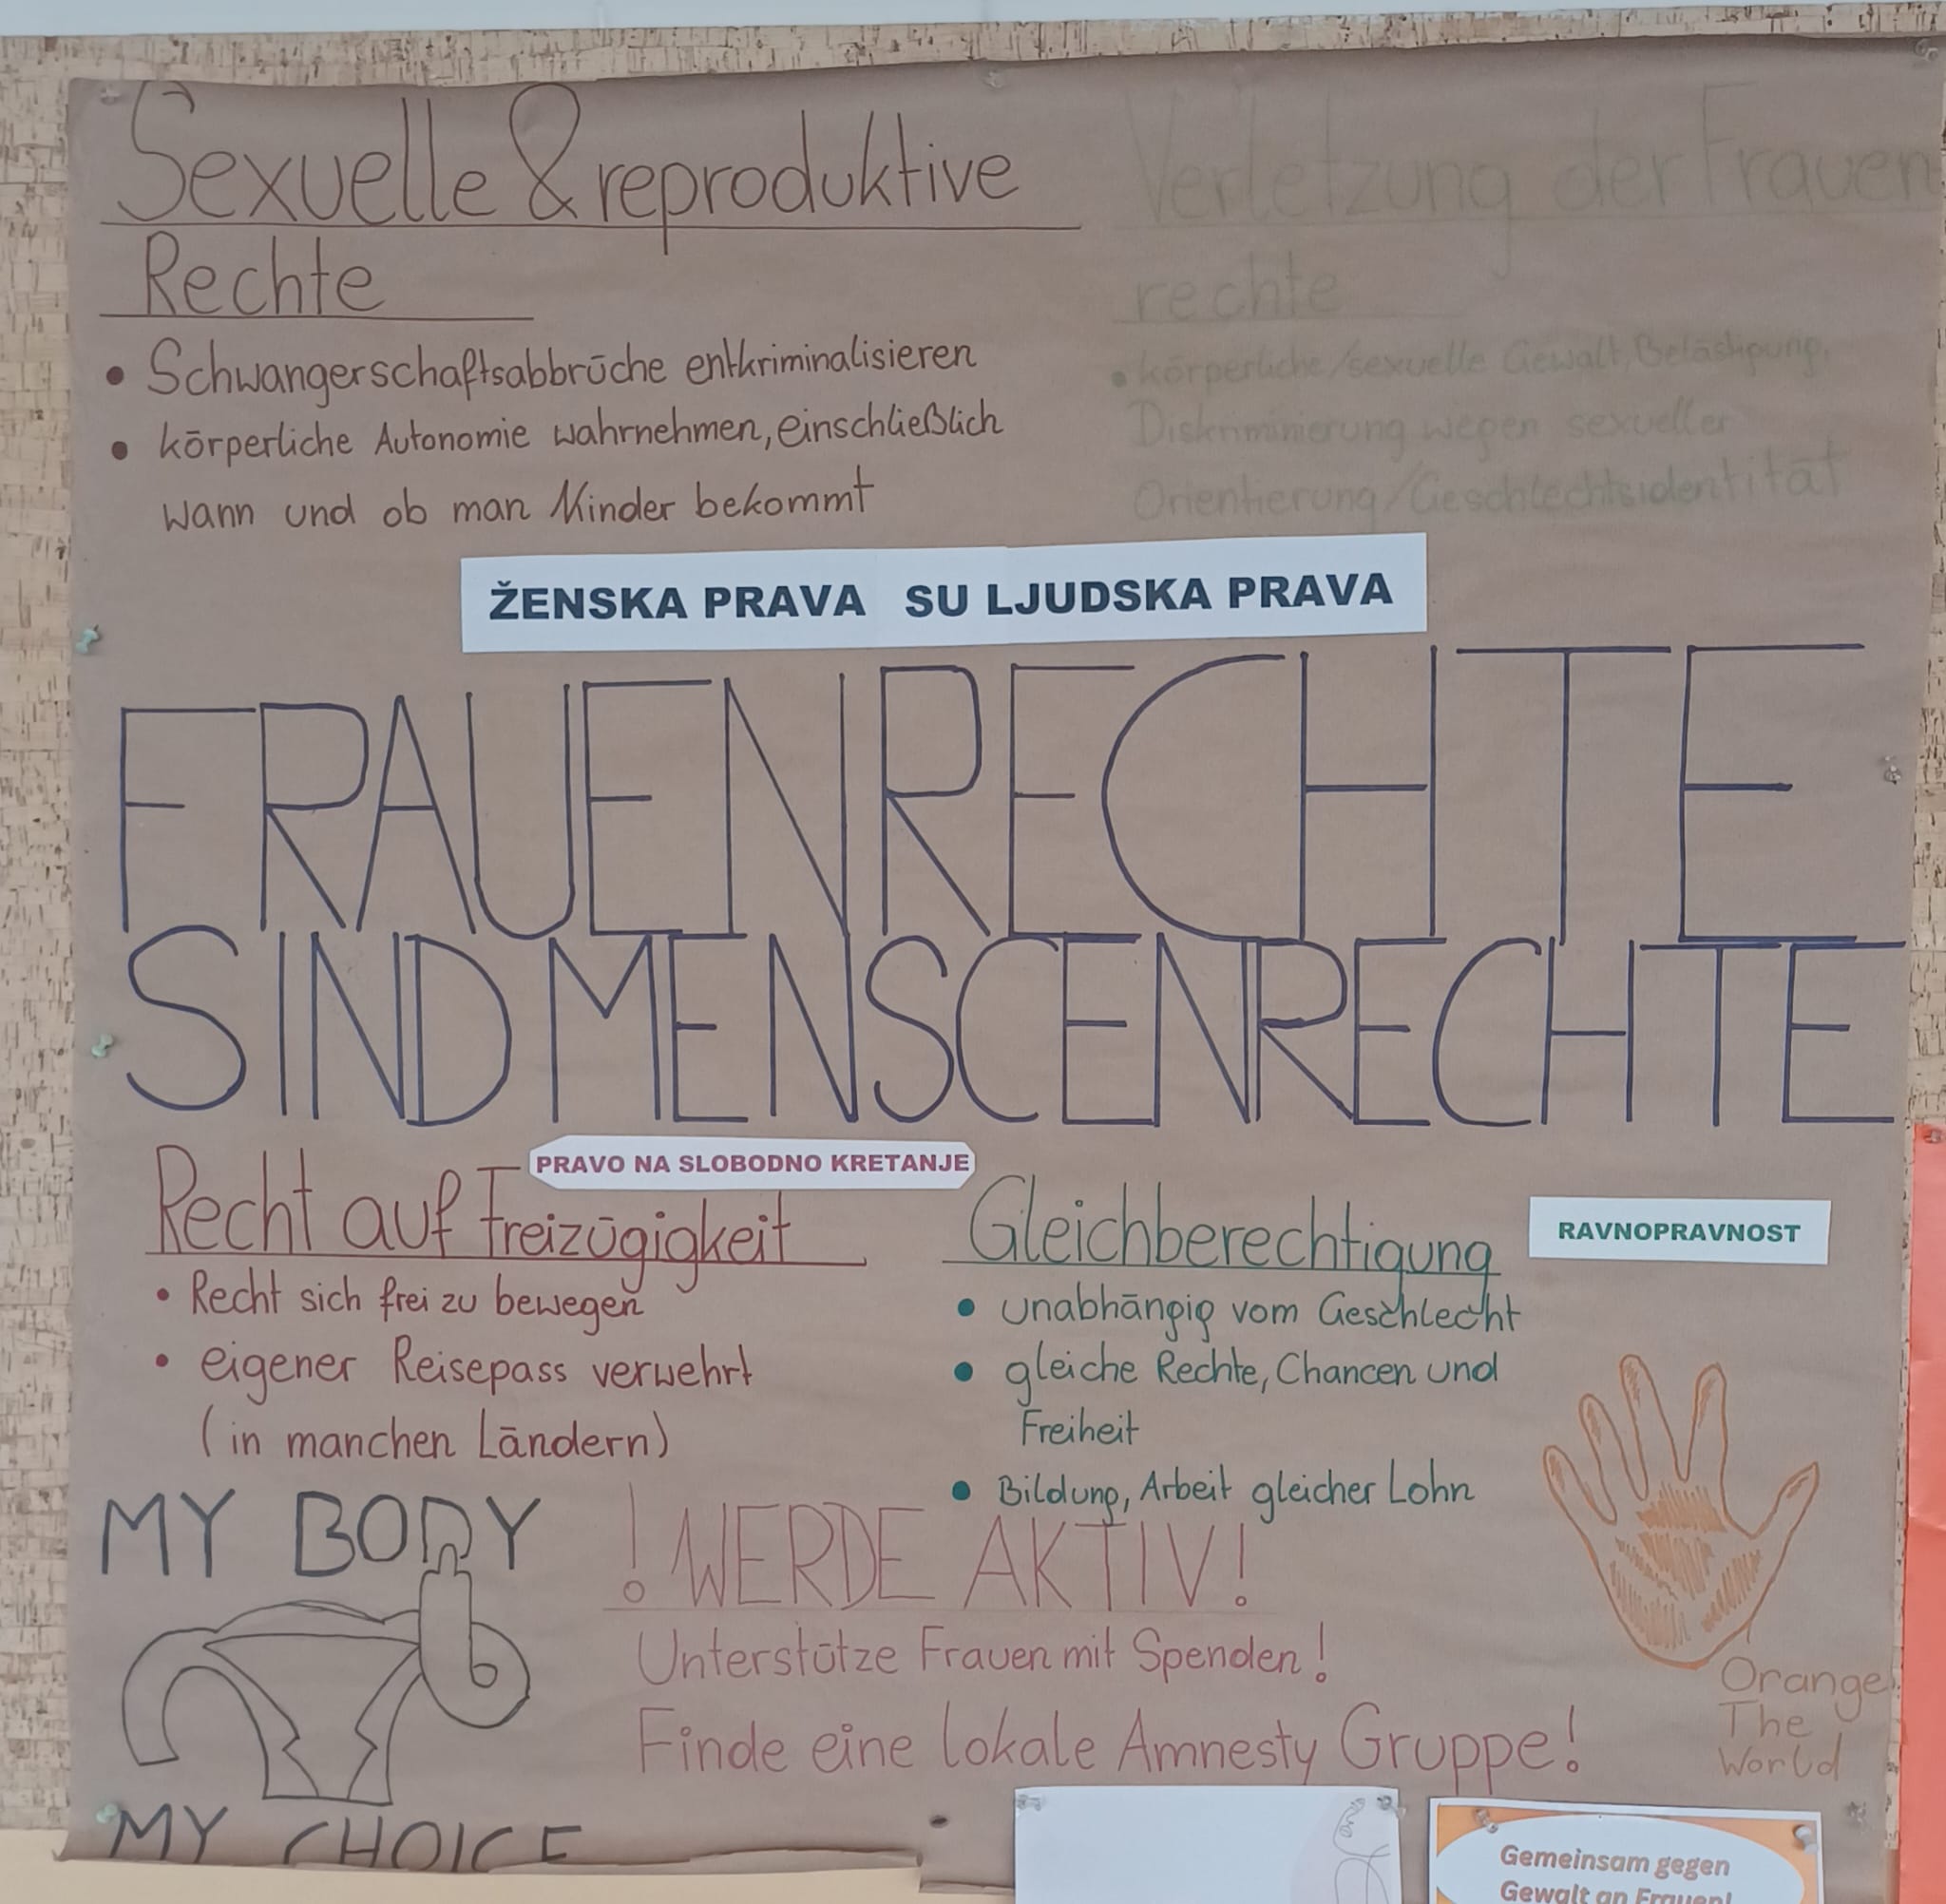 Sexuelle & reproduktive
Rechte
• Schwangerschaftsabbrüche entkriminalisieren
• körperliche Autonomie wahrnehmen, einschließlich
wann und ob man Kinder bekommt
Verletzung der Frauen
rechte
• körperliche/sexuelle Gewalt, Belästigung,
Diskriminierung wegen sexueller
Orientierung/Geschlechtsidentität
ŽENSKA PRAVA SU LJUDSKA PRAVA
FRAUENRECHTE
SIND MENSCENRECHTE
PRAVO NA SLOBODNO KRETANJE
Recht auf Freizügigkeit
• Recht sich frei zu bewegen
• eigener Reisepass verwehrt
(in manchen Ländern)
Gleichberechtigung
RAVNOPRAVNOST
• unabhängig vom Geschlecht
• gleiche Rechte, Chancen und
Freiheit
• Bildung, Arbeit gleicher Lohn
MY BODY
MY CHOICE
! WERDE AKTIV!
Unterstütze Frauen mit Spenden!
Finde eine lokale Amnesty Gruppe!
Orange
The
World
Gemeinsam gegen
Gewalt an Frauen!